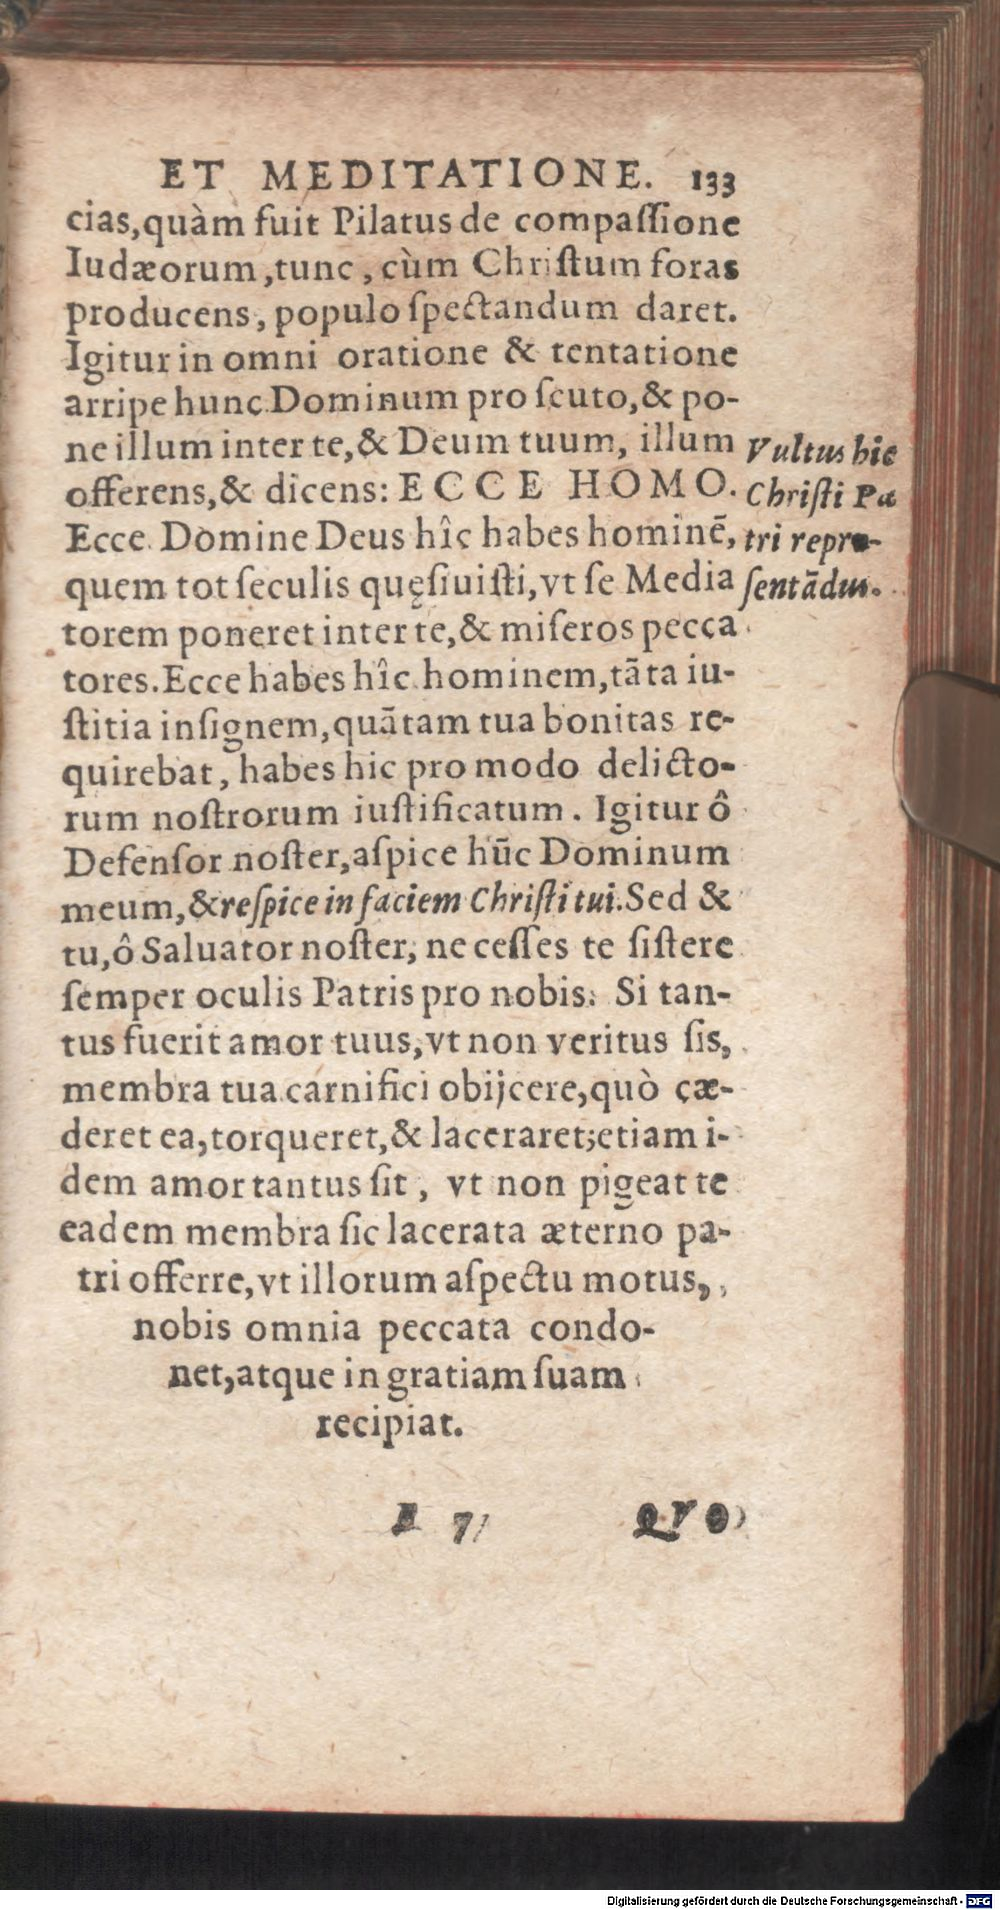 ET MEDITATIONE. 133
cias,quàm fuit Pilatus de compaſſione
Iudæorum,tunc, cùm Chriſtum foras
producens, populo ſpectandum daret.
Igitur in omni oratione & tentatione
arripe hunc Dominum pro ſcuto,& po-
ne illum inter te,& Deum tuum, illum
offerens,& dicens: ECCE HOMO.
Ecce Domine Deus hîc habes hominē,
quem tot ſeculis quęſiuiſti,vt ſe Media
torem poneret inter te,& miſeros pecca
tores.Ecce habes hîc hominem,tāta iu-
ſtitia inſignem,quātam tua bonitas re-
quirebat, habes hic pro modo delicto-
rum noſtrorum iuſtificatum. Igitur ô
Defenſor noſter,aſpice hūc Dominum
meum,&reſpice in faciem Chriſti tui.Sed &
tu,ô Saluator noſter, ne ceſſes te ſiſtere
ſemper oculis Patris pro nobis. Si tan-
tus fuerit amor tuus,vt non veritus ſis,
membra tua carnifici obijcere,quò cæ-
deret ea,torqueret,& laceraret;etiam i-
dem amor tantus ſit, vt non pigeat te
eadem membra ſic lacerata æterno pa-
tri offerre,vt illorum aſpectu motus,
nobis omnia peccata condo-
net,atque in gratiam ſuam
recipiat.
Vultus hic
Chriſti Pa
tri repræ-
ſentādus.
7 QVO
Digitalisierung gefördert durch die Deutsche Forschungsgemeinschaft - DFG